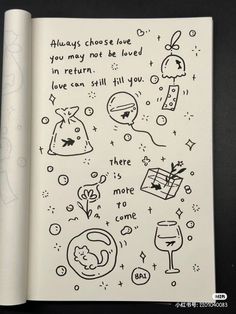 Always choose love
you may not be loved
in return.
love can still fill you.
there
is
more
to
come
BAI
小红书
小红书号: 0309040083